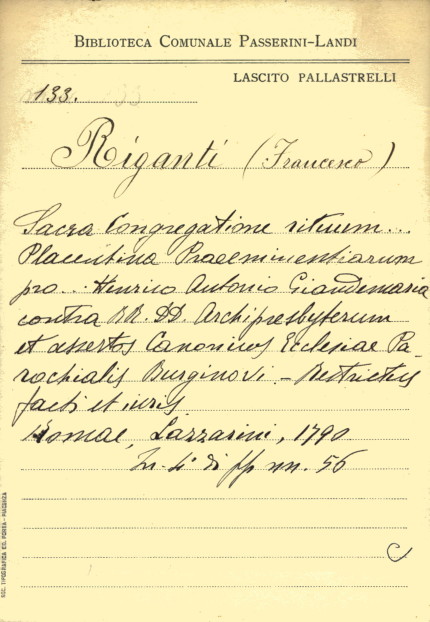 BIBLIOTECA COMUNALE PASSERINI-LANDI
LASCITO PALLASTRELLI
133.
Riganti (Francesco)
Sacra Congregatione rituum...
Placentina Praeminentiarum
pro... Henrico Antonio Giandemaria
contra RR. DD. Archipresbyterum
et assertos Canonicos Ecclesiae Pa-
rochialis Burginovi - Restrictus
facti et iuris.
Romae, Lazzarini, 1790
In-4° di pp nn. 56
C
SOC. TIPOGRAFICA ED. PORTA - PIACENZA